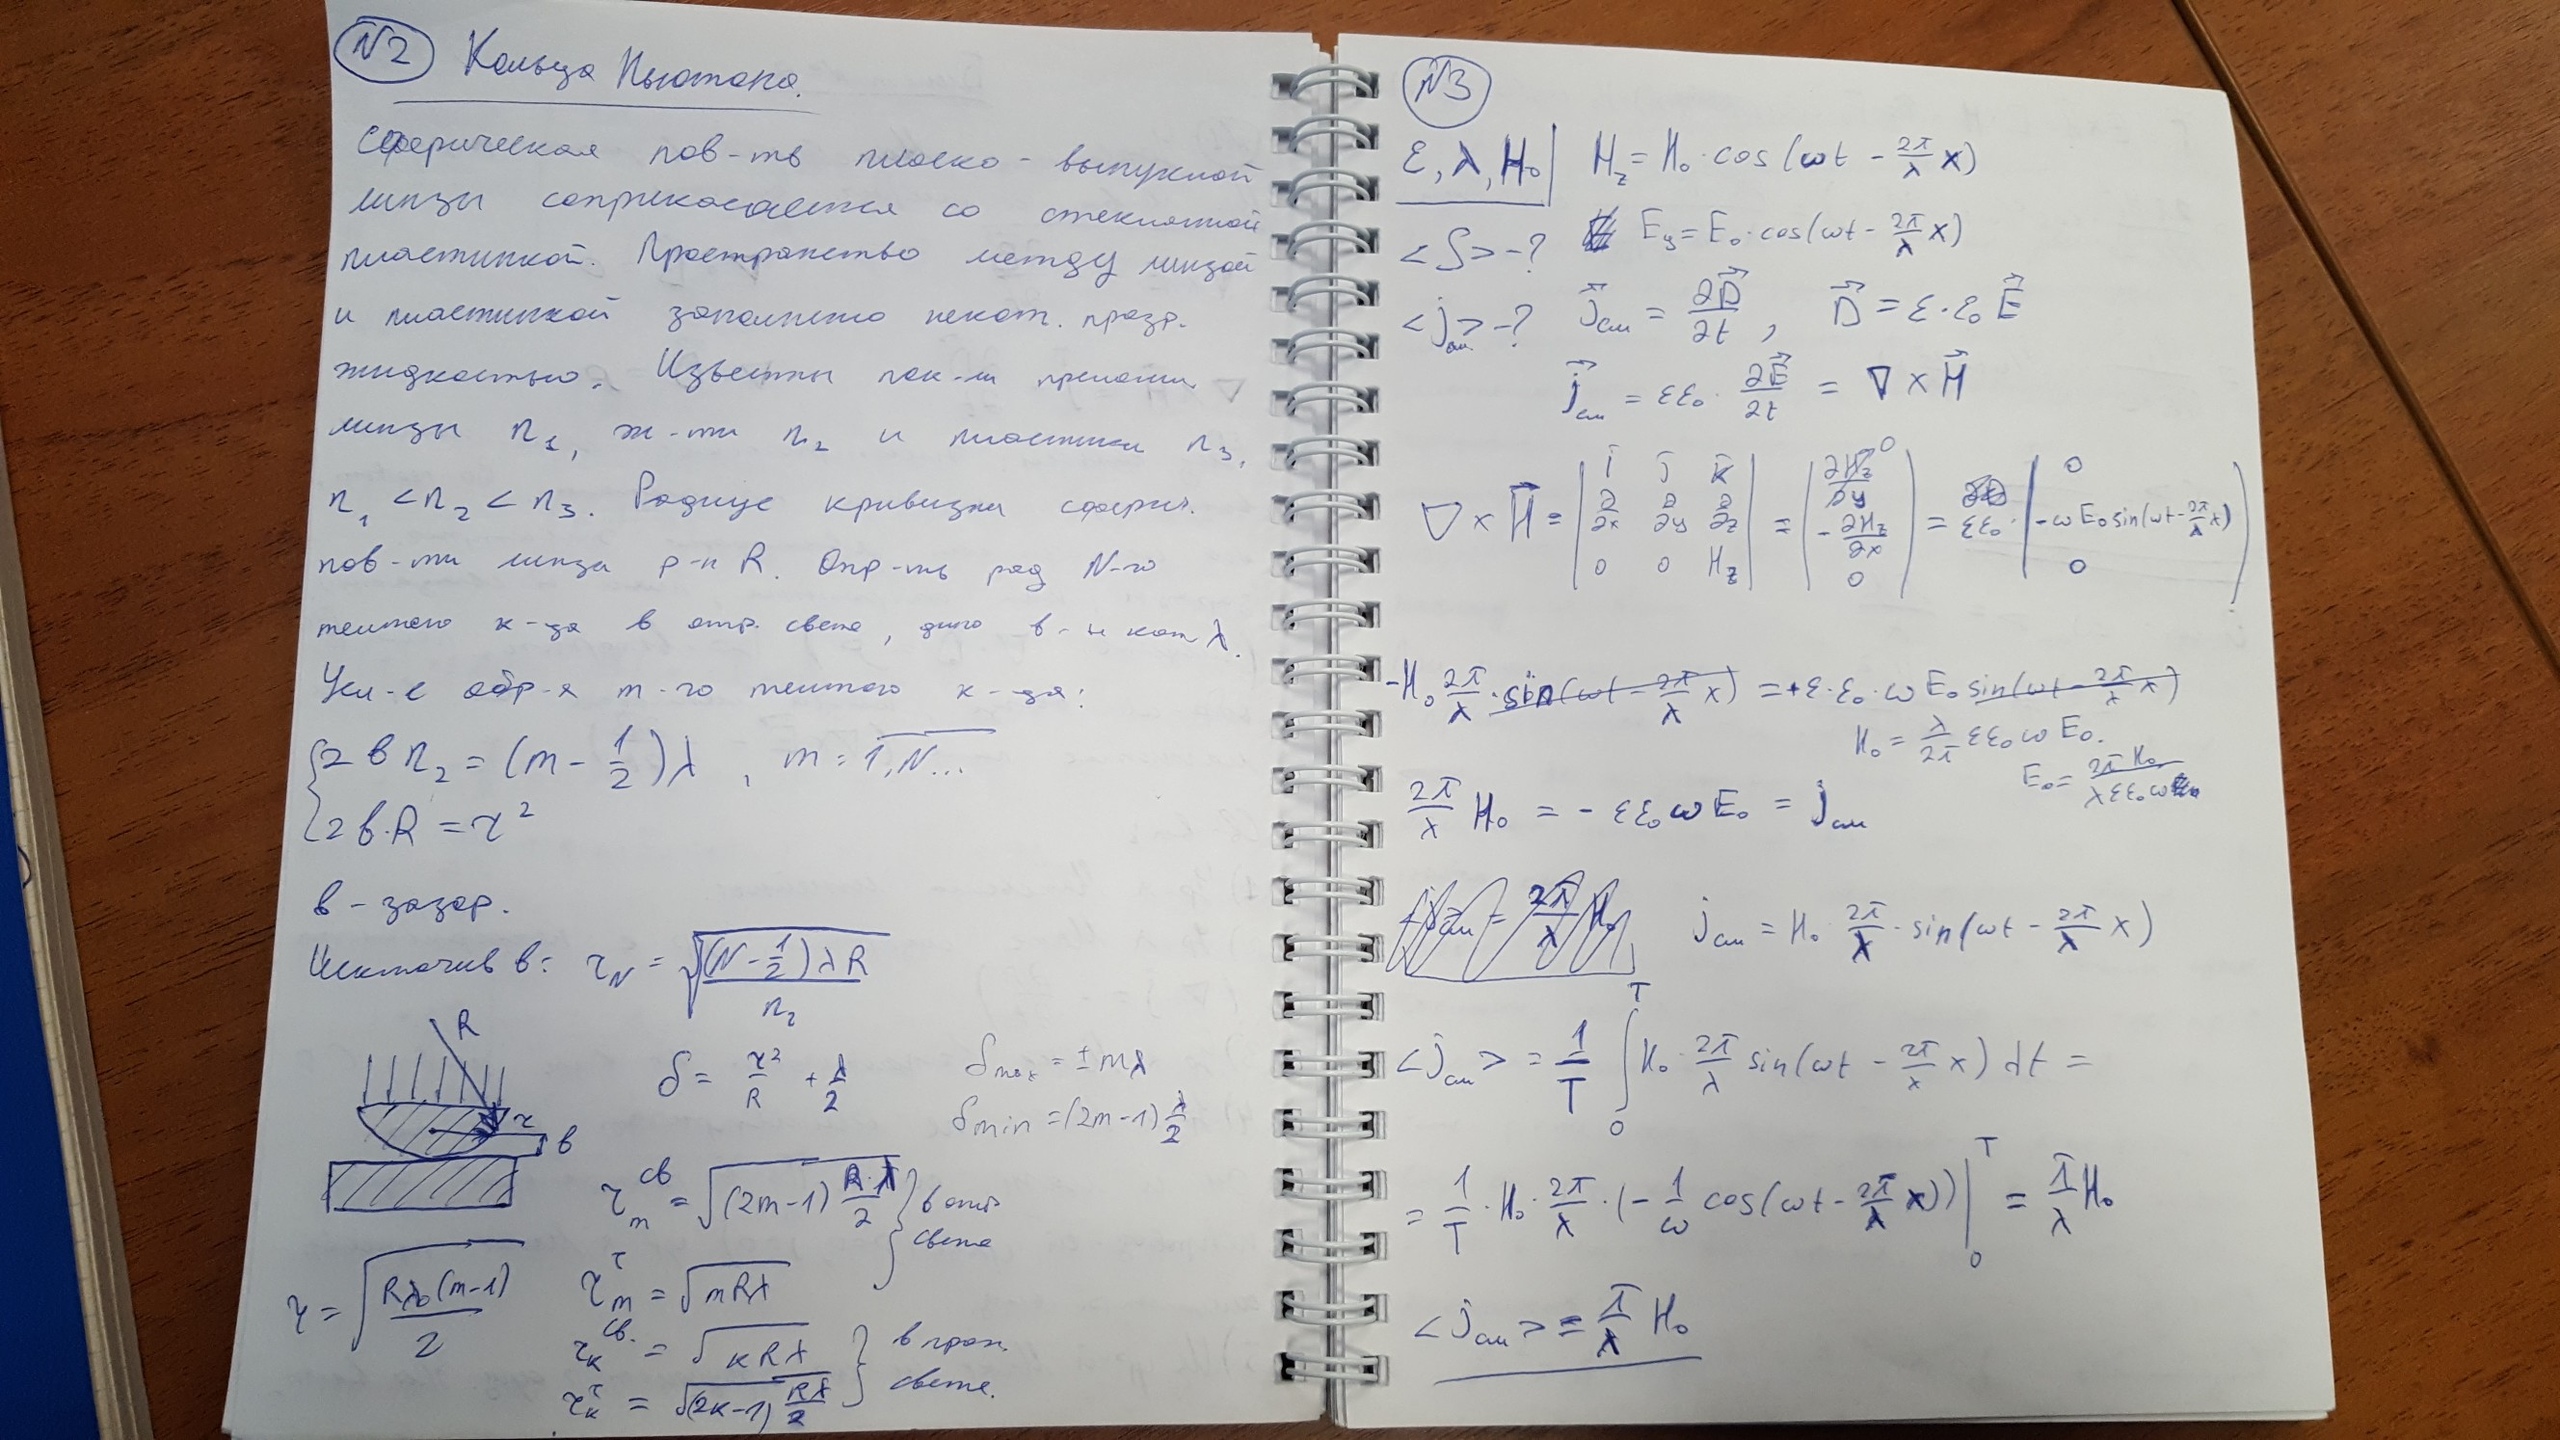 №2 Кольца Ньютона.
Сферическая пов-ть плоско-выпуклой
линзы соприкасается со стеклянной
пластинкой. Пространство между линзой
и пластинкой заполнено некот. прозр.
жидкостью. Известны пок-ли преломл.
линзы n₁, ж-ти n₂ и пластинки n₃,
n₁ < n₂ < n₃. Радиус кривизны сферич.
пов-ти линзы р-н R. Опр-ть рад N-го
темного к-ца в отр. свете, длина в-ы кот λ.
Усл-е обр-я m-го темного к-ца:
2 b n₂ = (m - 1/2) λ, m = 1, N...
2 b·R = r²
b - зазор.
Исключив b: r_N = √((N - 1/2) λ R / n₂)
R
r
b
δ = r²/R + λ/2
δmax = ± mλ
δmin = (2m-1) λ/2
r_m^св = √((2m-1) R·λ/2) } в отр.
r_m^т = √(mRλ) } свете
r = √(Rλ₀(m-1)/2)
r_к^св. = √(кRλ) } в прох.
r_к^т = √((2к-1) Rλ/2) } свете.
№3
ε, λ, H₀ | H_z = H₀·cos(ωt - 2π/λ x)
<S> - ? E_y = E₀·cos(ωt - 2π/λ x)
<j_см> - ? j⃗_см = ∂D⃗/∂t, D⃗ = ε·ε₀ E⃗
j⃗_см = εε₀ · ∂E⃗/∂t = ∇ × H⃗
∇ × H⃗ = | i j k ; ∂/∂x ∂/∂y ∂/∂z ; 0 0 H_z | = ( ∂H_z/∂y 0 ; -∂H_z/∂x ; 0 ) = εε₀· ( 0 ; -ω E₀ sin(ωt - 2π/λ x) ; 0 )
-H₀ 2π/λ · sin(ωt - 2π/λ x) = +ε·ε₀·ω E₀ sin(ωt - 2π/λ x)
H₀ = λ/2π εε₀ ω E₀.
E₀ = 2π H₀ / λεε₀ω
2π/λ H₀ = - εε₀ωE₀ = j_см
j_см = 2π/λ H₀
j_см = H₀ · 2π/λ · sin(ωt - 2π/λ x)
<j_см> = 1/T ∫₀ᵀ H₀ · 2π/λ sin(ωt - 2π/λ x) dt =
= 1/T · H₀ · 2π/λ · (- 1/ω cos(ωt - 2π/λ x)) |₀ᵀ = π/λ H₀
<j_см> = π/λ H₀